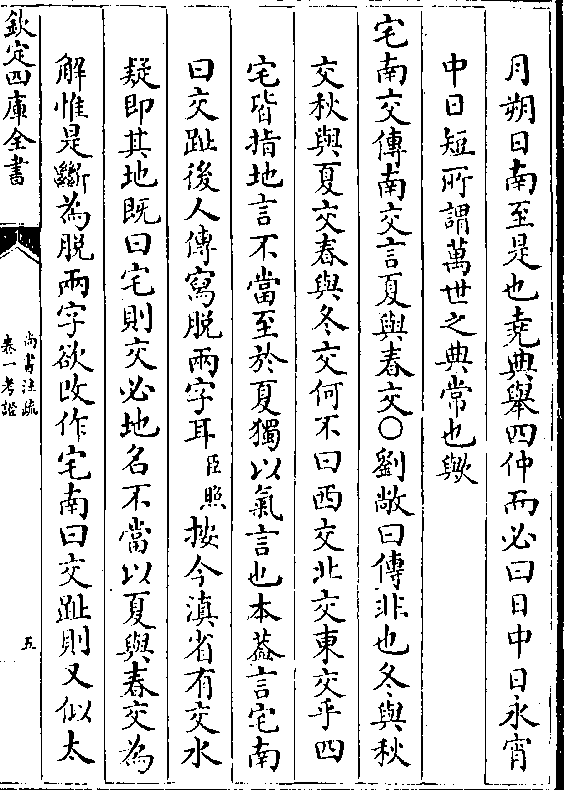 月朔日南至是也堯典舉四仲而必曰日中日永宵
中日短所謂萬世之典常也歟
宅南交傳南交言夏與春交○劉敞曰傳非也冬與秋
交秋與夏交春與冬交何不曰西交北交東交乎四
宅皆指地言不當至於夏獨以氣言也本蓋言宅南
曰交趾後人傳寫脫兩字耳臣照按今滇省有交水
疑即其地既曰宅則交必地名不當以夏與春交為
解惟是斷為脫兩字欲改作宅南曰交趾則又似太
欽定四庫全書
尚書注疏
卷一考證
五